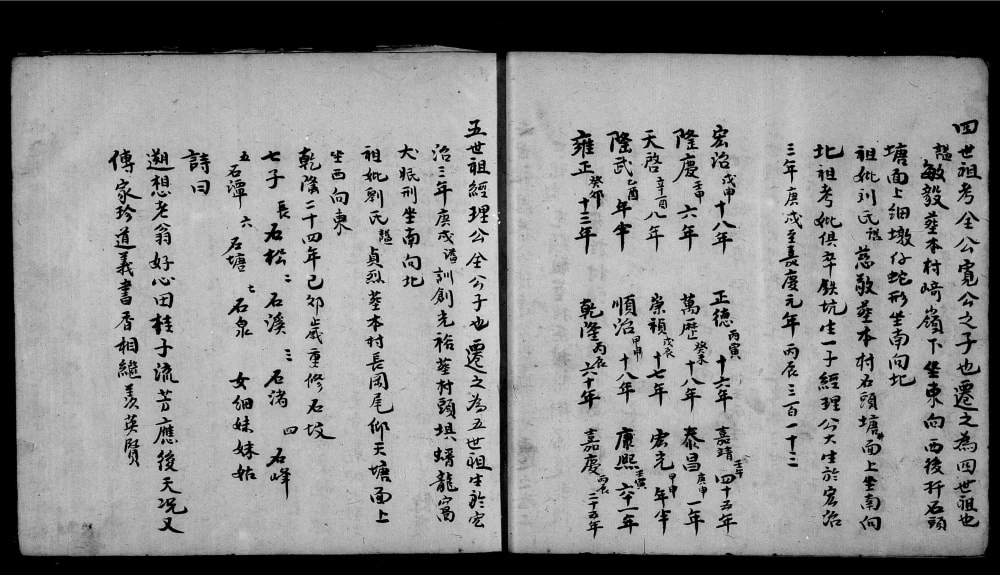 四世祖考全公寬公之子也遷之為四世祖也
謚敏毅塟本村﨑嶺下坐東向西後扦石頭
塘面上細墩仔蛇形坐南向北
祖妣刘氏謚慈敬塟本村石頭塘面上坐南向
北祖考妣俱卒鉄坑生一子經理公大生於宏治
三年庚戍至嘉慶元年丙辰三百一十三
宏治戊申十八年 正德丙寅十六年 嘉靖壬午四十五年
隆慶壬申六年 萬歷癸未十八年 泰昌庚申一年
天啓辛酉八年 崇禎戊辰十七年 宏光甲申年半
隆武乙酉年半 順治甲申十八年 康熙壬寅六十一年
雍正癸卯十三年 乾隆丙辰六十年 嘉慶丙辰二十五年
五世祖經理公全公子也遷之為五世祖生於宏
治三年庚戍謚訓創光裕塟村頭埧蟠龍窩
犬眠刑坐南向北
祖妣劉氏謚貞烈塟本村長岡尾仰天塘面上
坐西向東
乾隆二十四年己夘歲重修石坟
七子 長石松 二石溪 三石渚 四石峰
五石潭 六石塘 七石泉 女細妹妹姑
詩曰
遡想老翁好心田桂子流芳應後天况又
傳家珍道義書香相繼羨英賢